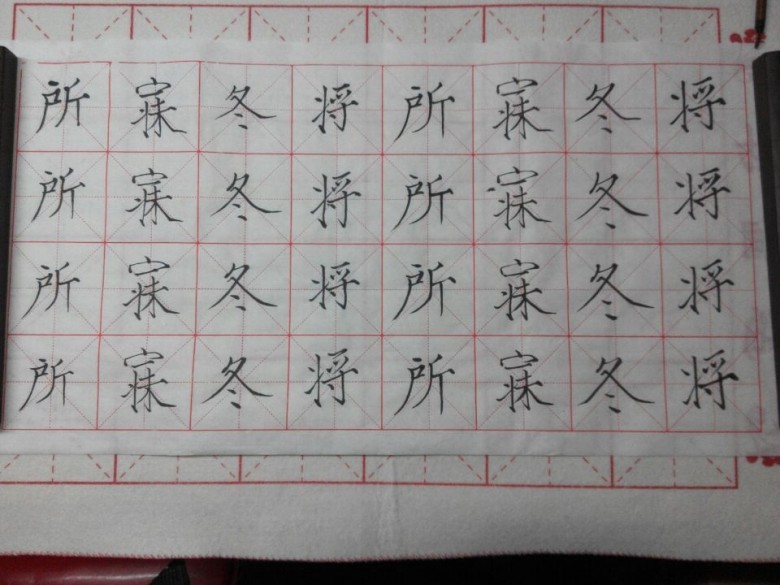 所寐冬将所寐冬将
所寐冬将所寐冬将
所寐冬将所寐冬将
所寐冬将所寐冬将